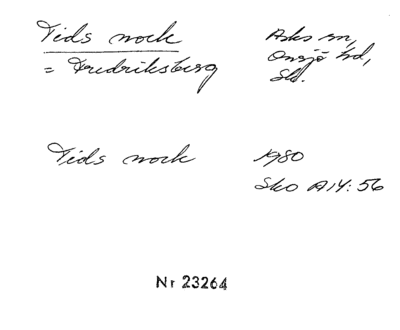 Tids mock
= Fredriksberg
Asks sn,
Onsjö hd,
Sk.
Tids mock
1980
Sko A14: 56
Nr 23264